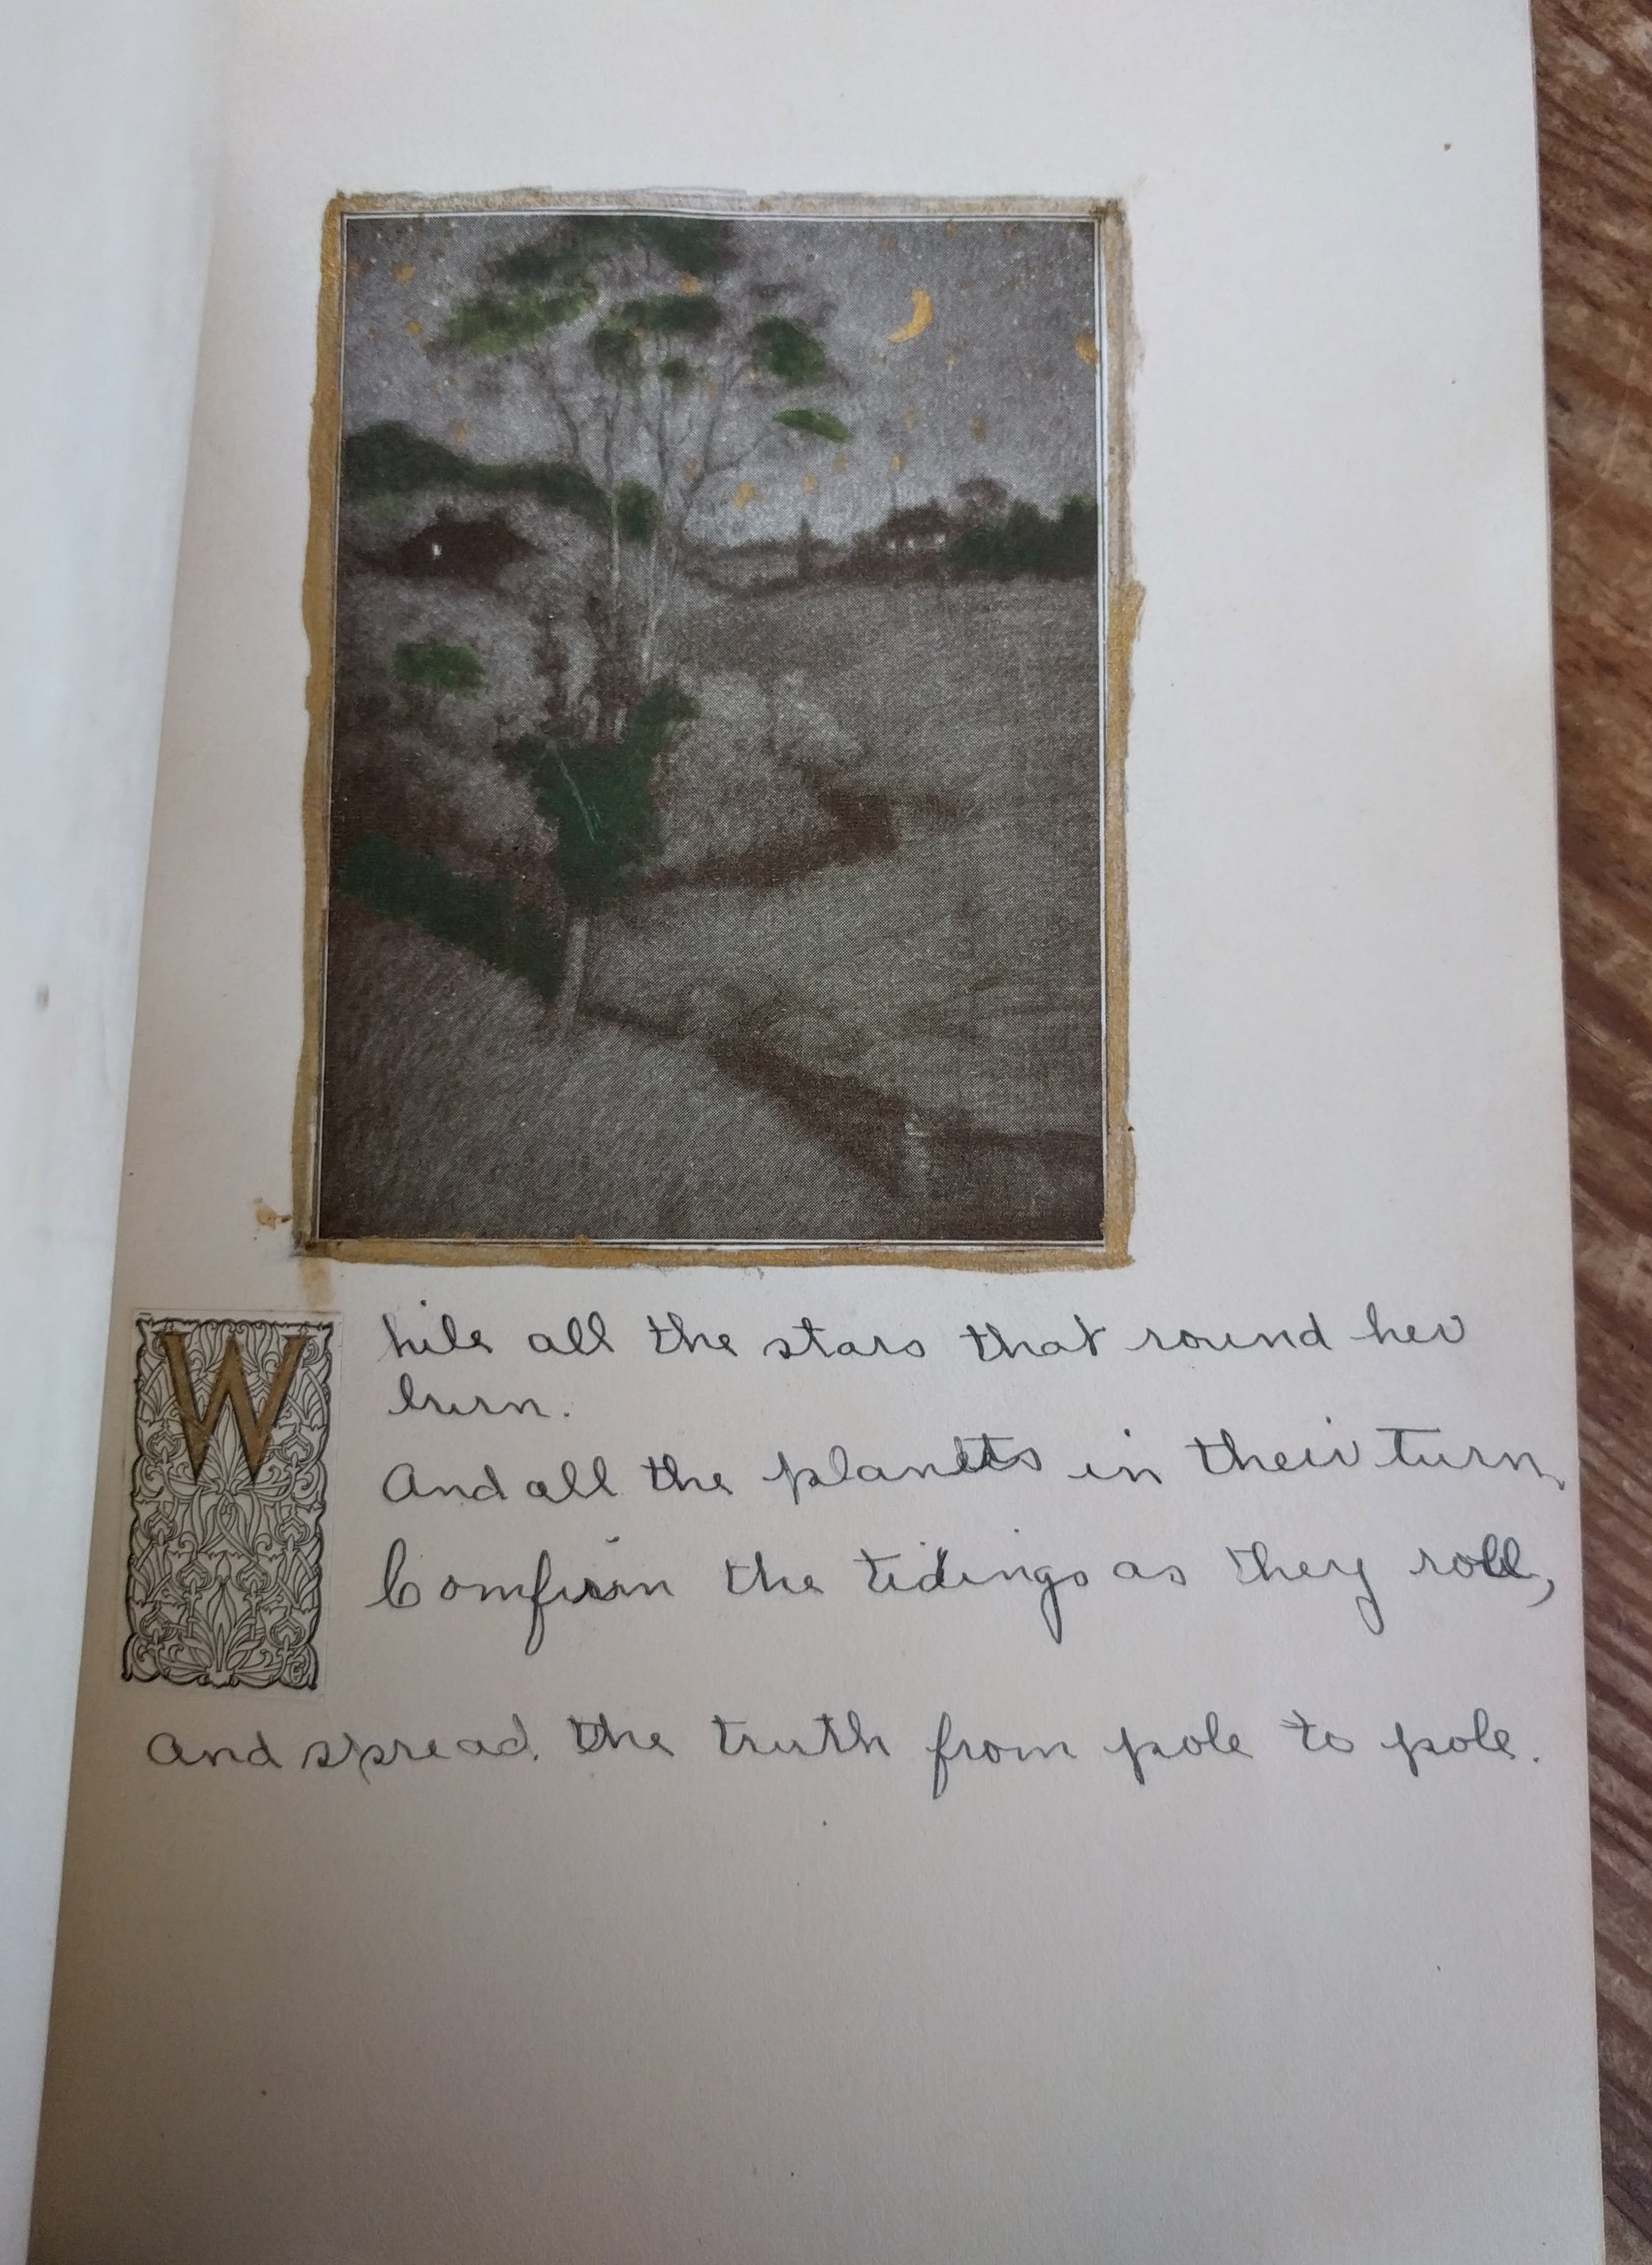 While all the stars that round her
burn.
And all the planets in their turn,
Comfirm the tidings as they roll,
and spread the truth from pole to pole.